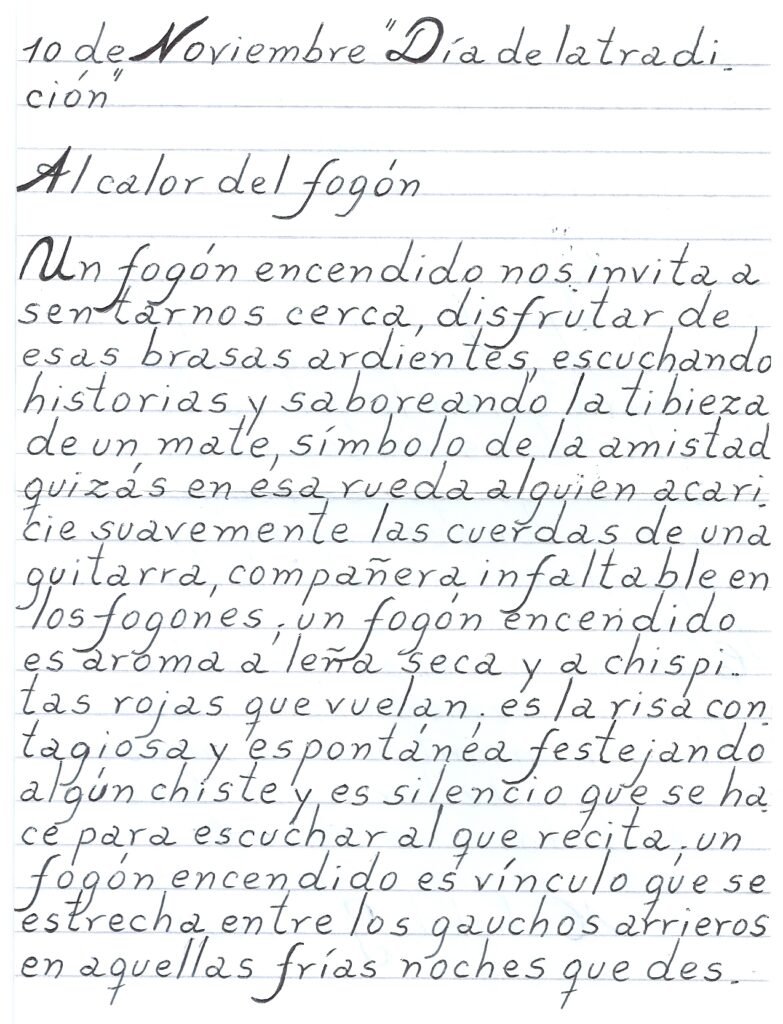 10 de Noviembre "Día de la tradi-
ción"
Al calor del fogón
Un fogón encendido nos invita a
sentarnos cerca, disfrutar de
esas brasas ardientes, escuchando
historias y saboreando la tibieza
de un mate, símbolo de la amistad
quizás en esa rueda alguien acari-
cie suavemente las cuerdas de una
guitarra, compañera infaltable en
los fogones; un fogón encendido
es aroma a leña seca y a chispi-
tas rojas que vuelan, es la risa con
tagiosa y espontánea festejando
algún chiste y es silencio que se ha
ce para escuchar al que recita; un
fogón encendido es vínculo que se
estrecha entre los gauchos arrieros
en aquellas frías noches que des-